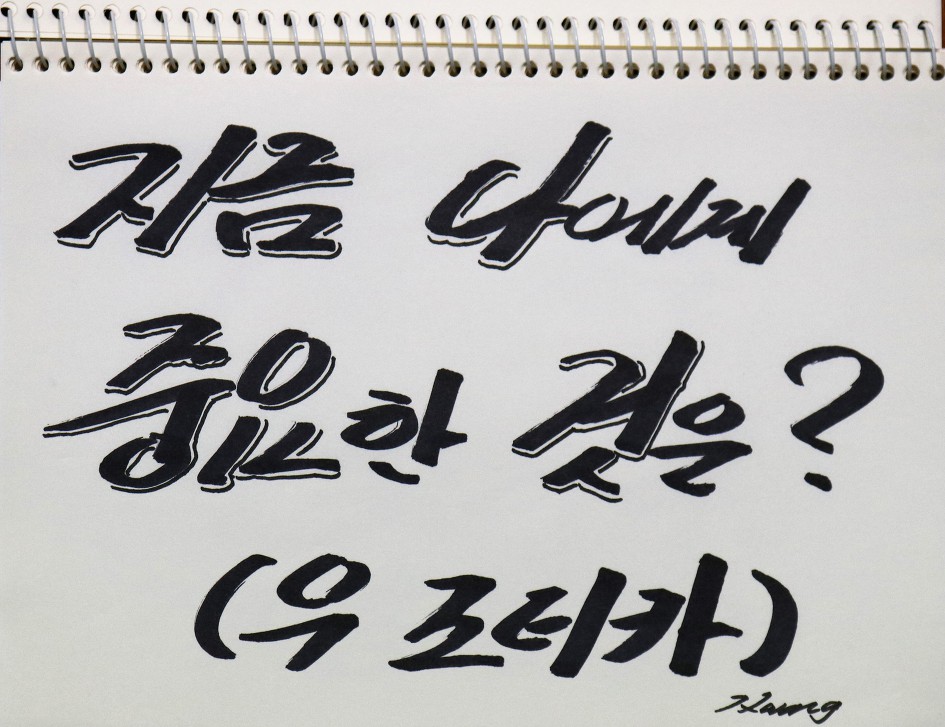 지금 나에게
중요한 것은?
(우 조티카)